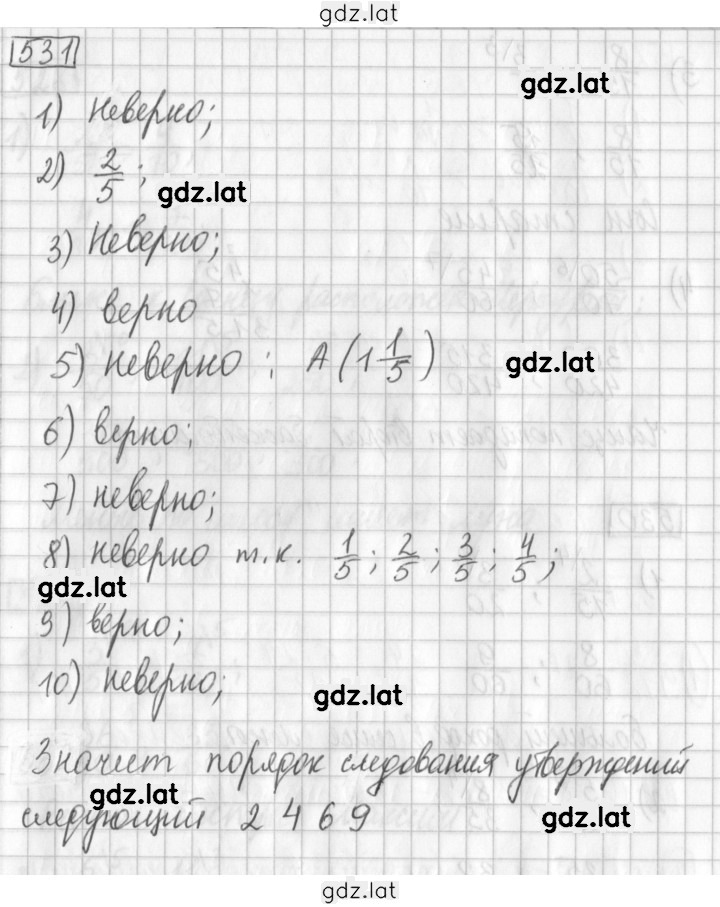 gdz.lat
531
gdz.lat
1) неверно;
2) 2/5;
gdz.lat
3) Неверно;
4) верно
5) неверно; A(1 1/5)
gdz.lat
6) верно;
7) неверно;
8) неверно т.к. 1/5; 2/5; 3/5; 4/5;
gdz.lat
9) верно;
10) неверно;
gdz.lat
Значит порядок следования утверждений
gdz.lat
следующий 2 4 6 9
gdz.lat
gdz.lat